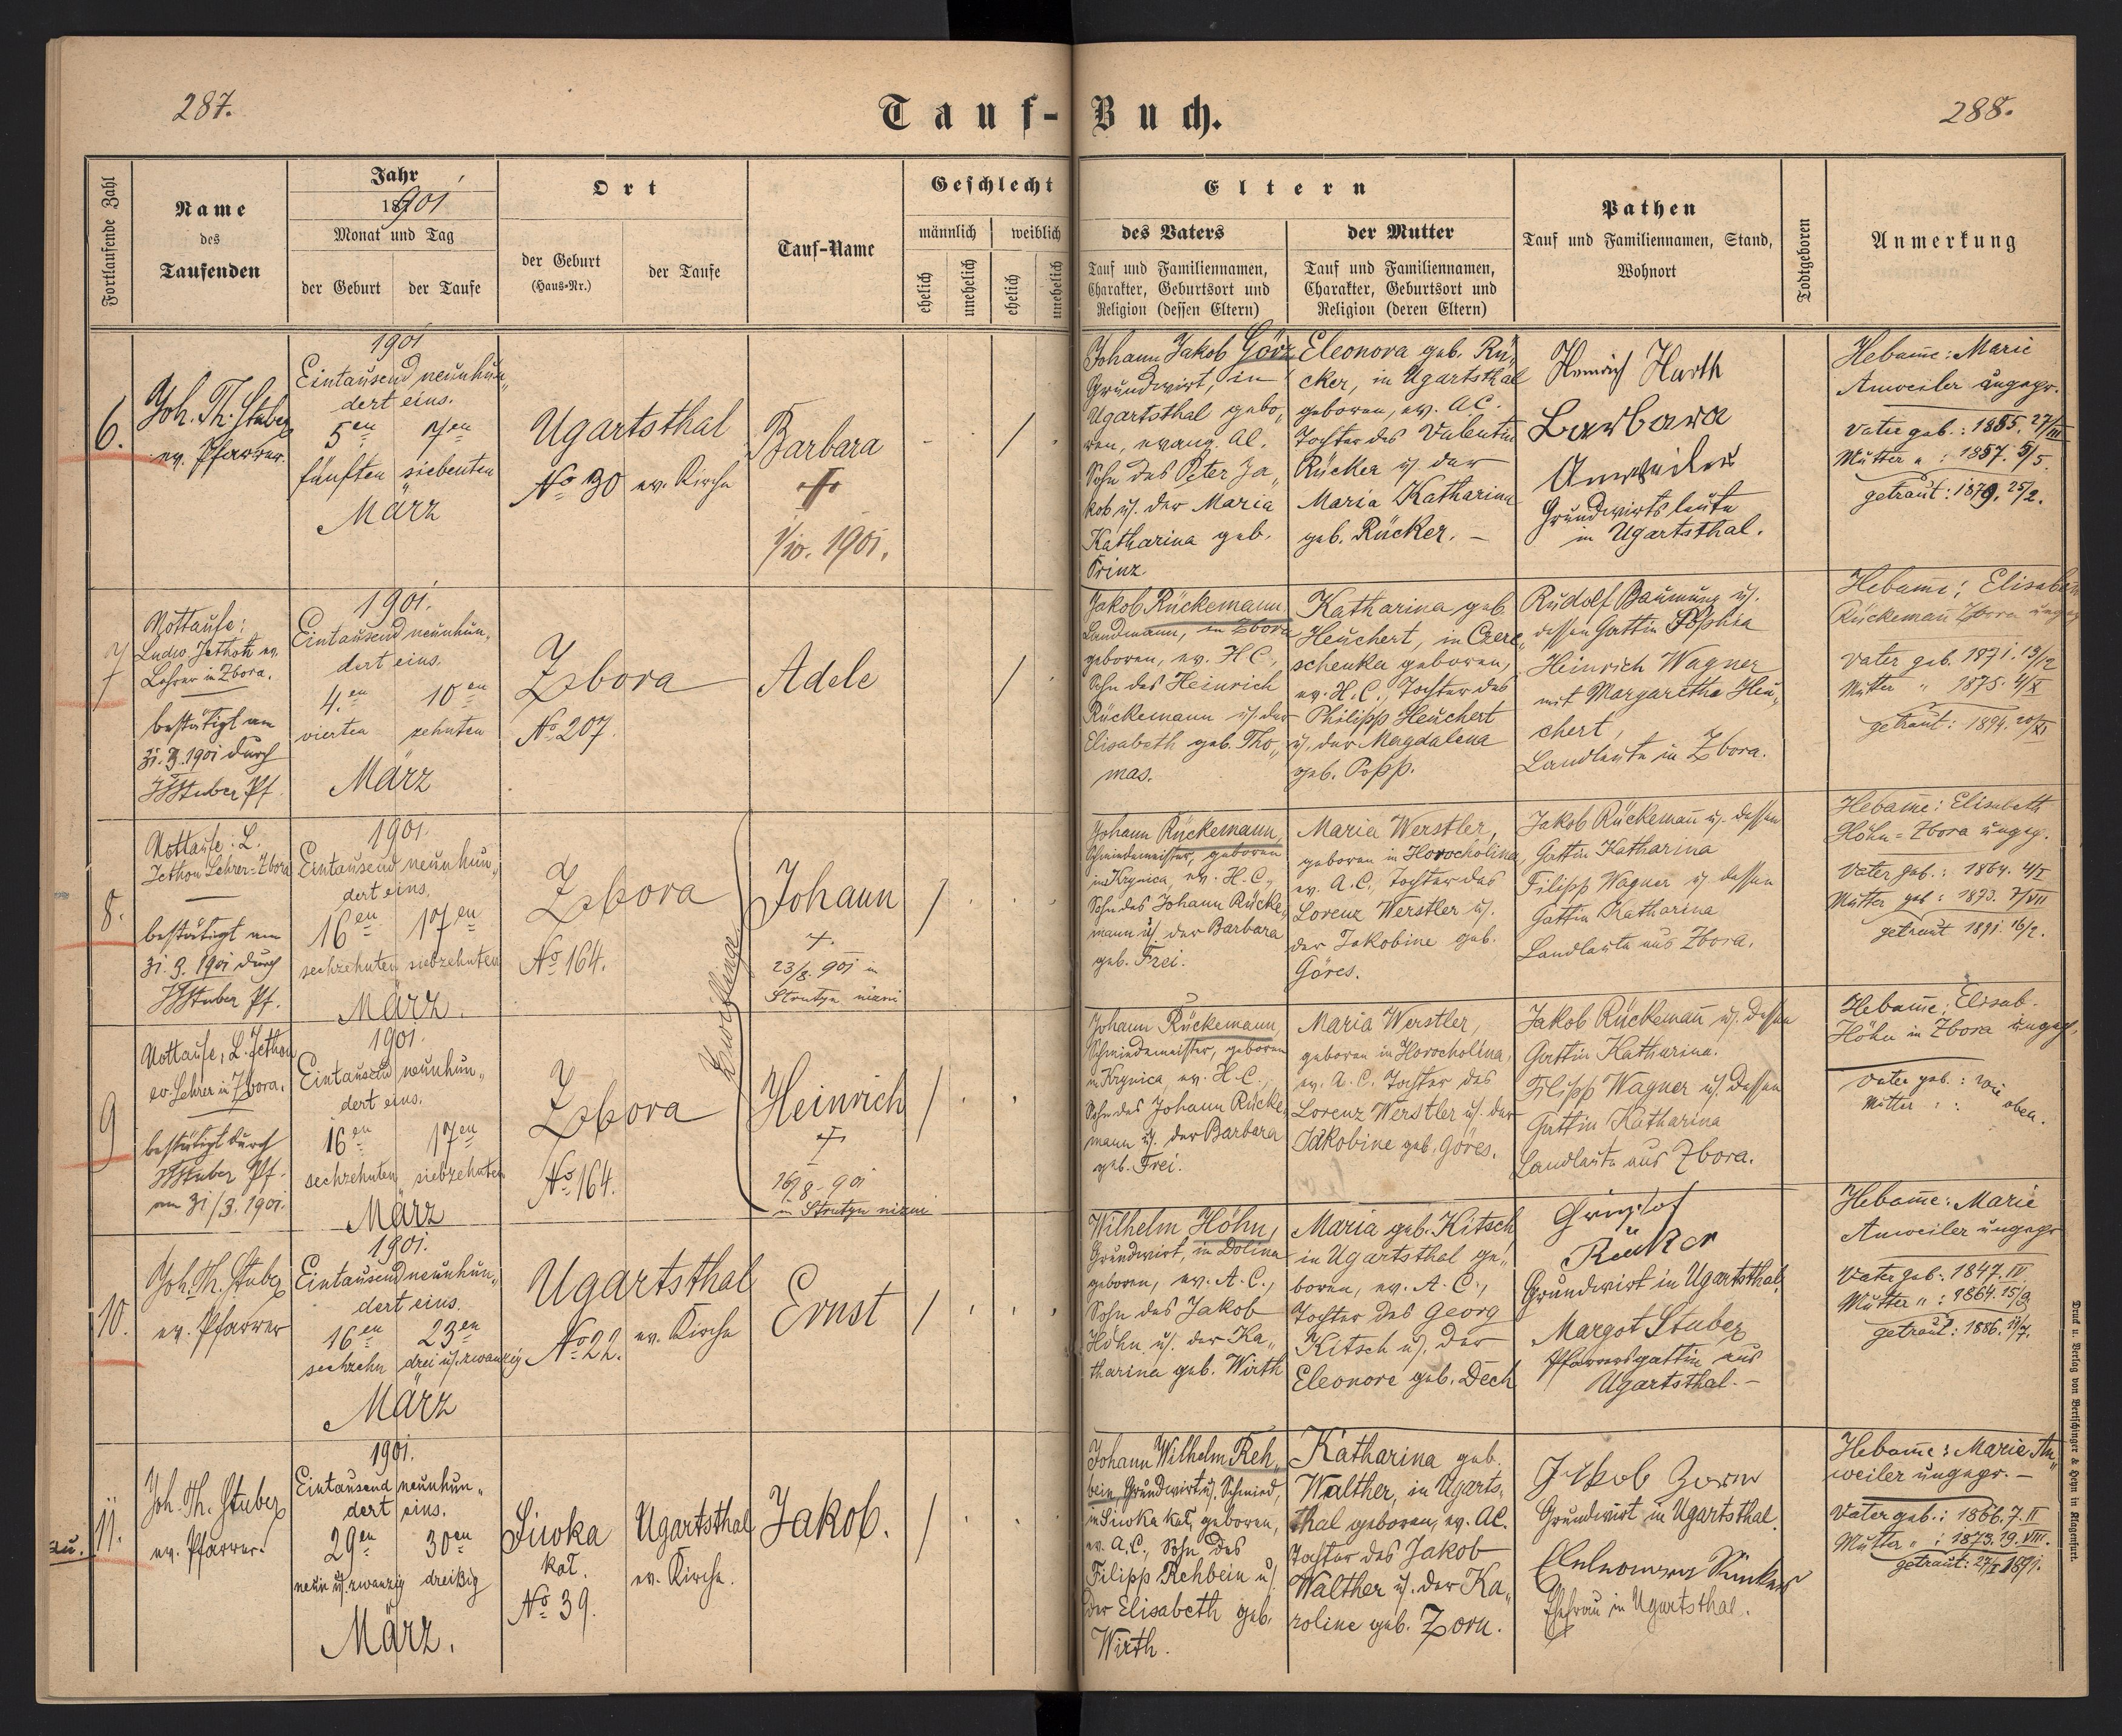 287.
Tauf-Buch.
288.
Fortlaufende Zahl
Name
des
Taufenden
Jahr
1901
Monat und Tag
der Geburt
der Taufe
Ort
der Geburt
(Haus-Nr.)
der Taufe
Tauf-Name
Geschlecht
männlich
weiblich
ehelich
unehelich
ehelich
unehelich
Eltern
des Vaters
Tauf und Familiennamen,
Charakter, Geburtsort und
Religion (dessen Eltern)
der Mutter
Tauf und Familiennamen,
Charakter, Geburtsort und
Religion (deren Eltern)
Pathen
Tauf und Familiennamen, Stand,
Wohnort
Todtgeboren
Anmerkung
6.
Joh. Th. Stuber
ev. Pfarrer.
1901
Eintausend neunhun„
dert eins.
5en 7en
fünften siebenten
März
Ugartsthal
No 30
ev. Kirche
Barbara
1901.
Johann Jakob Görz
Grundwirt, in
Ugartsthal gebo„
ren, evang. AC.
Sohn des Peter Ja„
kob u. der Maria
Katharina geb.
Prinz
Eleonora geb. Rü„
cker, in Ugartsthal
geboren, ev. A.C.
Tochter des Valentin
Rücker u. der
Maria Katharina
geb. Rücker. –
Heinrich Harth
Barbara
Anweiler
Grundwirtsleute
in Ugartsthal.
Hebame: Marie
Anweiler ungepr.
Vater geb.: 1855. 27/III
Mutter „ : 1857. 5/5.
getraut: 1879. 25/2.
7
Nottaufe:
Ludw. Jethon ev.
Lehrer in Zbora.
bestätigt am
31.3.1901 durch
JThStuber Pf.
1901.
Eintausend neunhun„
dert eins.
4.en 10en
vierten zehnten
März
Zbora
No 207.
Adele
Jakob Rückemann
Landmann, in Zbora
geboren, ev. H.C.,
Sohn des Heinrich
Rückemann u. der
Elisabeth geb. Tho„
mas.
Katharina geb.
Heuchert, in Czere„
schenka geboren,
ev. H.C., Tochter des
Philipp Heuchert
u. der Magdalena
geb. Popp.
Rudolf Baumung u.
dessen Gattin Sophia
Heinrich Wagner
mit Margaretha Heu„
chert,
Landleute in Zbora.
Hebame: Elisabeth
Rückemann Zbora
Vater geb. 1871. 13/12
Mutter „ 1875. 4/X
getraut: 1894. 20/XI
8.
Nottaufe: L.
Jethon Lehrer-Zbora
bestätigt am
31.3.1901 durch
JThStuber Pf.
1901.
Eintausend neunhun„
dert eins.
16en 17en
sechzehnten siebzehnten
März.
Zbora
No 164.
Zwillinge
Johann
23/8. 901 in
Strutyn nizni
Johann Rückemann,
Schmiedemeister, geboren
in Krynica, ev. H.C.,
Sohn des Johann Rücke„
mann u. der Barbara
geb. Frei.
Maria Werstler,
geboren in Horocholina,
ev. A.C., Tochter des
Lorenz Werstler u.
der Jakobine geb.
Göres.
Jakob Rückemann u. dessen
Gattin Katharina
Filipp Wagner u. dessen
Gattin Katharina
Landleute aus Zbora.
Hebame: Elisabeth
Höhn-Zbora ungepr.
Vater geb.: 1864. 4/I
Mutter geb: 1873. 7/VII
getraut 1891. 16/2.
9
Nottaufe, L. Jethon
ev. Lehrer in Zbora.
bestätigt durch
JThStuber Pf.
am 31/3. 1901.
1901.
Eintausend neunhun„
dert eins.
16en 17en
sechzehnten siebzehnten
März
Zbora
No 164.
Heinrich
16/8 - 901
in Strutyn nizni
Johann Rückemann,
Schmiedemeister, geboren
in Krynica, ev. H.C.,
Sohn des Johann Rücke„
mann u. der Barbara
geb. Frei.
Maria Werstler,
geboren in Horocholina,
ev. A.C. Tochter des
Lorenz Werstler u. der
Jakobine geb. Göres.
Jakob Rückemann u. dessen
Gattin Katharina.
Filipp Wagner u. dessen
Gattin Katharina
Landleute aus Zbora.
Hebame: Elisab.
Höhn in Zbora ungepr.
Vater geb.: wie
Mutter : oben.
10.
Joh. Th. Stuber
ev. Pfarrer
1901.
Eintausend neunhun„
dert eins.
16en 23en
sechzehn drei u. zwanzig
März
Ugartsthal
No 22.
ev. Kirche
Ernst
Wilhelm Höhn,
Grundwirt, in Dolina
geboren, ev. A.C.,
Sohn des Jakob
Höhn u. der Ka„
tharina geb. Wirth
Maria geb. Kitsch
in Ugartsthal ge„
boren, ev. A.C.,
Tochter des Georg
Kitsch u. der
Eleonore geb. Dech
Rücker
Grundwirt in Ugartsthal,
Margot Stuber
Pfarrersgattin aus
Ugartsthal. –
Hebame: Marie
Anweiler ungepr
Vater geb.: 1847. IV
Mutter „ : 1864. 15/9
getraut: 1886. 11/7.
au.
11.
Joh. Th. Stuber
ev. Pfarrer.
1901.
Eintausend neunhun„
dert eins.
29en 30en
neun u. zwanzig dreißig
März.
Siwka
kal.
No 39.
Ugartsthal
ev. Kirche.
Jakob.
Johann Wilhelm Reh„
bein, Grundwirt u. Schmied,
in Siwka kal, geboren,
ev. A.C., Sohn des
Filipp Rehbein u.
der Elisabeth geb.
Wirth.
Katharina geb.
Walther, in Ugarts„
thal geboren, ev. AC.
Tochter des Jakob
Walther u. der Ka„
roline geb. Zorn.
Jakob Zorn
Grundwirt in Ugartsthal.
Ehefrau in Ugartsthal.
Hebame: Marie An„
weiler ungepr. –
Vater geb.: 1866. 7. II
Mutter „ : 1873. 19. VIII.
getraut: 27/I 1891.
Druck u. Verlag von Bertschinger & Heyn in Klagenfurt.